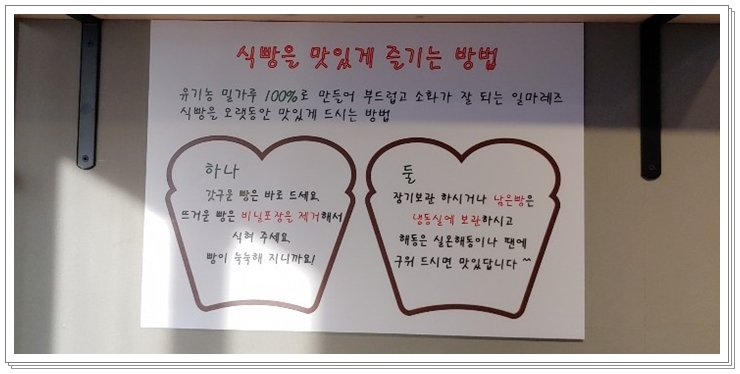 식빵을 맛있게 즐기는 방법
유기농 밀가루 100%로 만들어 부드럽고 소화가 잘 되는 일마레즈
식빵을 오랫동안 맛있게 드시는 방법
하나
갓구운 빵은 바로 드세요
뜨거운 빵은 비닐포장을 제거해서
식혀 주세요
빵이 눅눅해 지니까요!
둘
장기보관 하시거나 남은빵은
냉동실에 보관하시고
해동은 실온해동이나 팬에
구워 드시면 맛있답니다 ^^